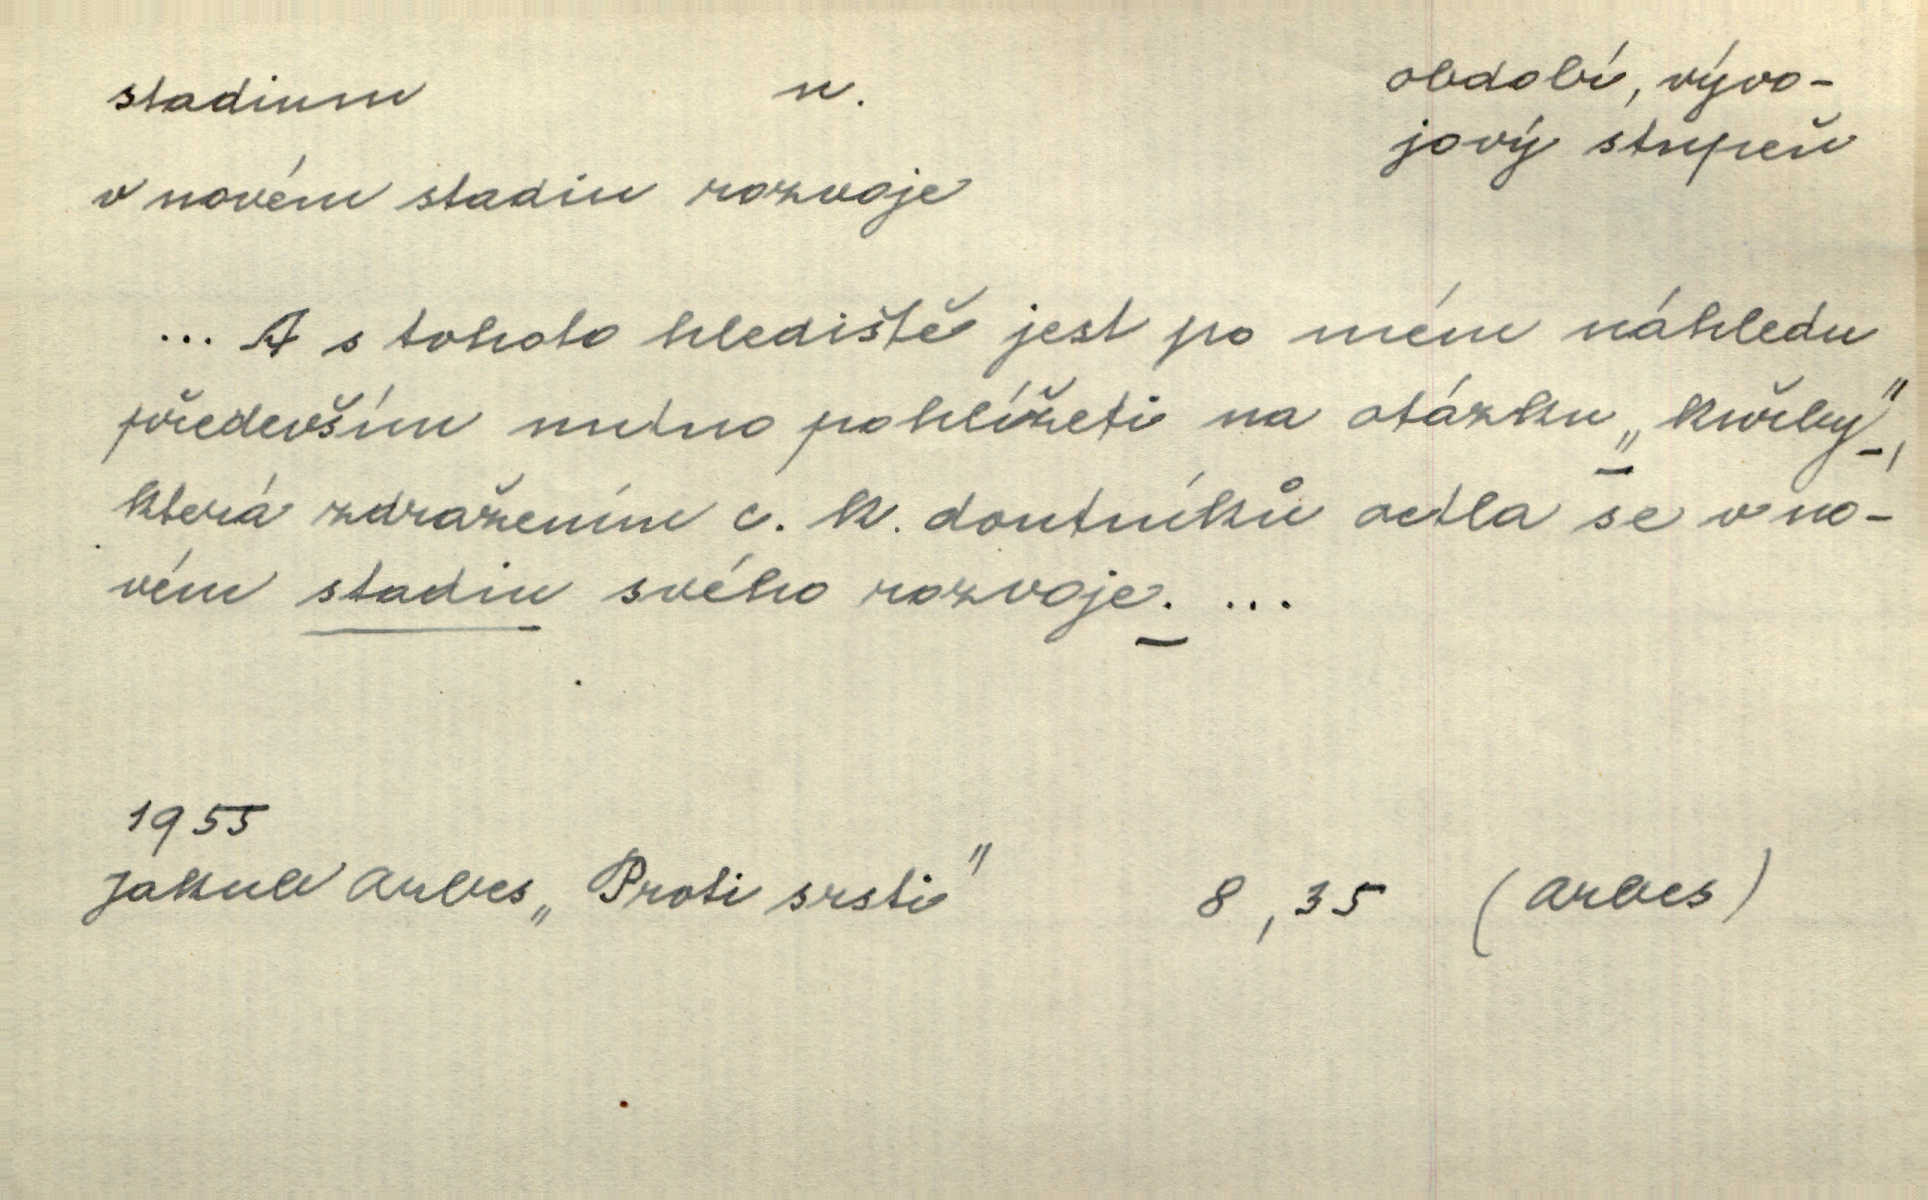 stadium n. období, vývo-
jový stupeň
v novém stadiu rozvoje
... A s tohoto hlediště jest po mém náhledu
především nutno pohlížeti na otázku „kuřby",
která zdražením c. k. doutníků octla se v no-
vém stadiu svého rozvoje. ...
1955
Jakub Arbes „Proti srsti" 8, 35 (Arbes)